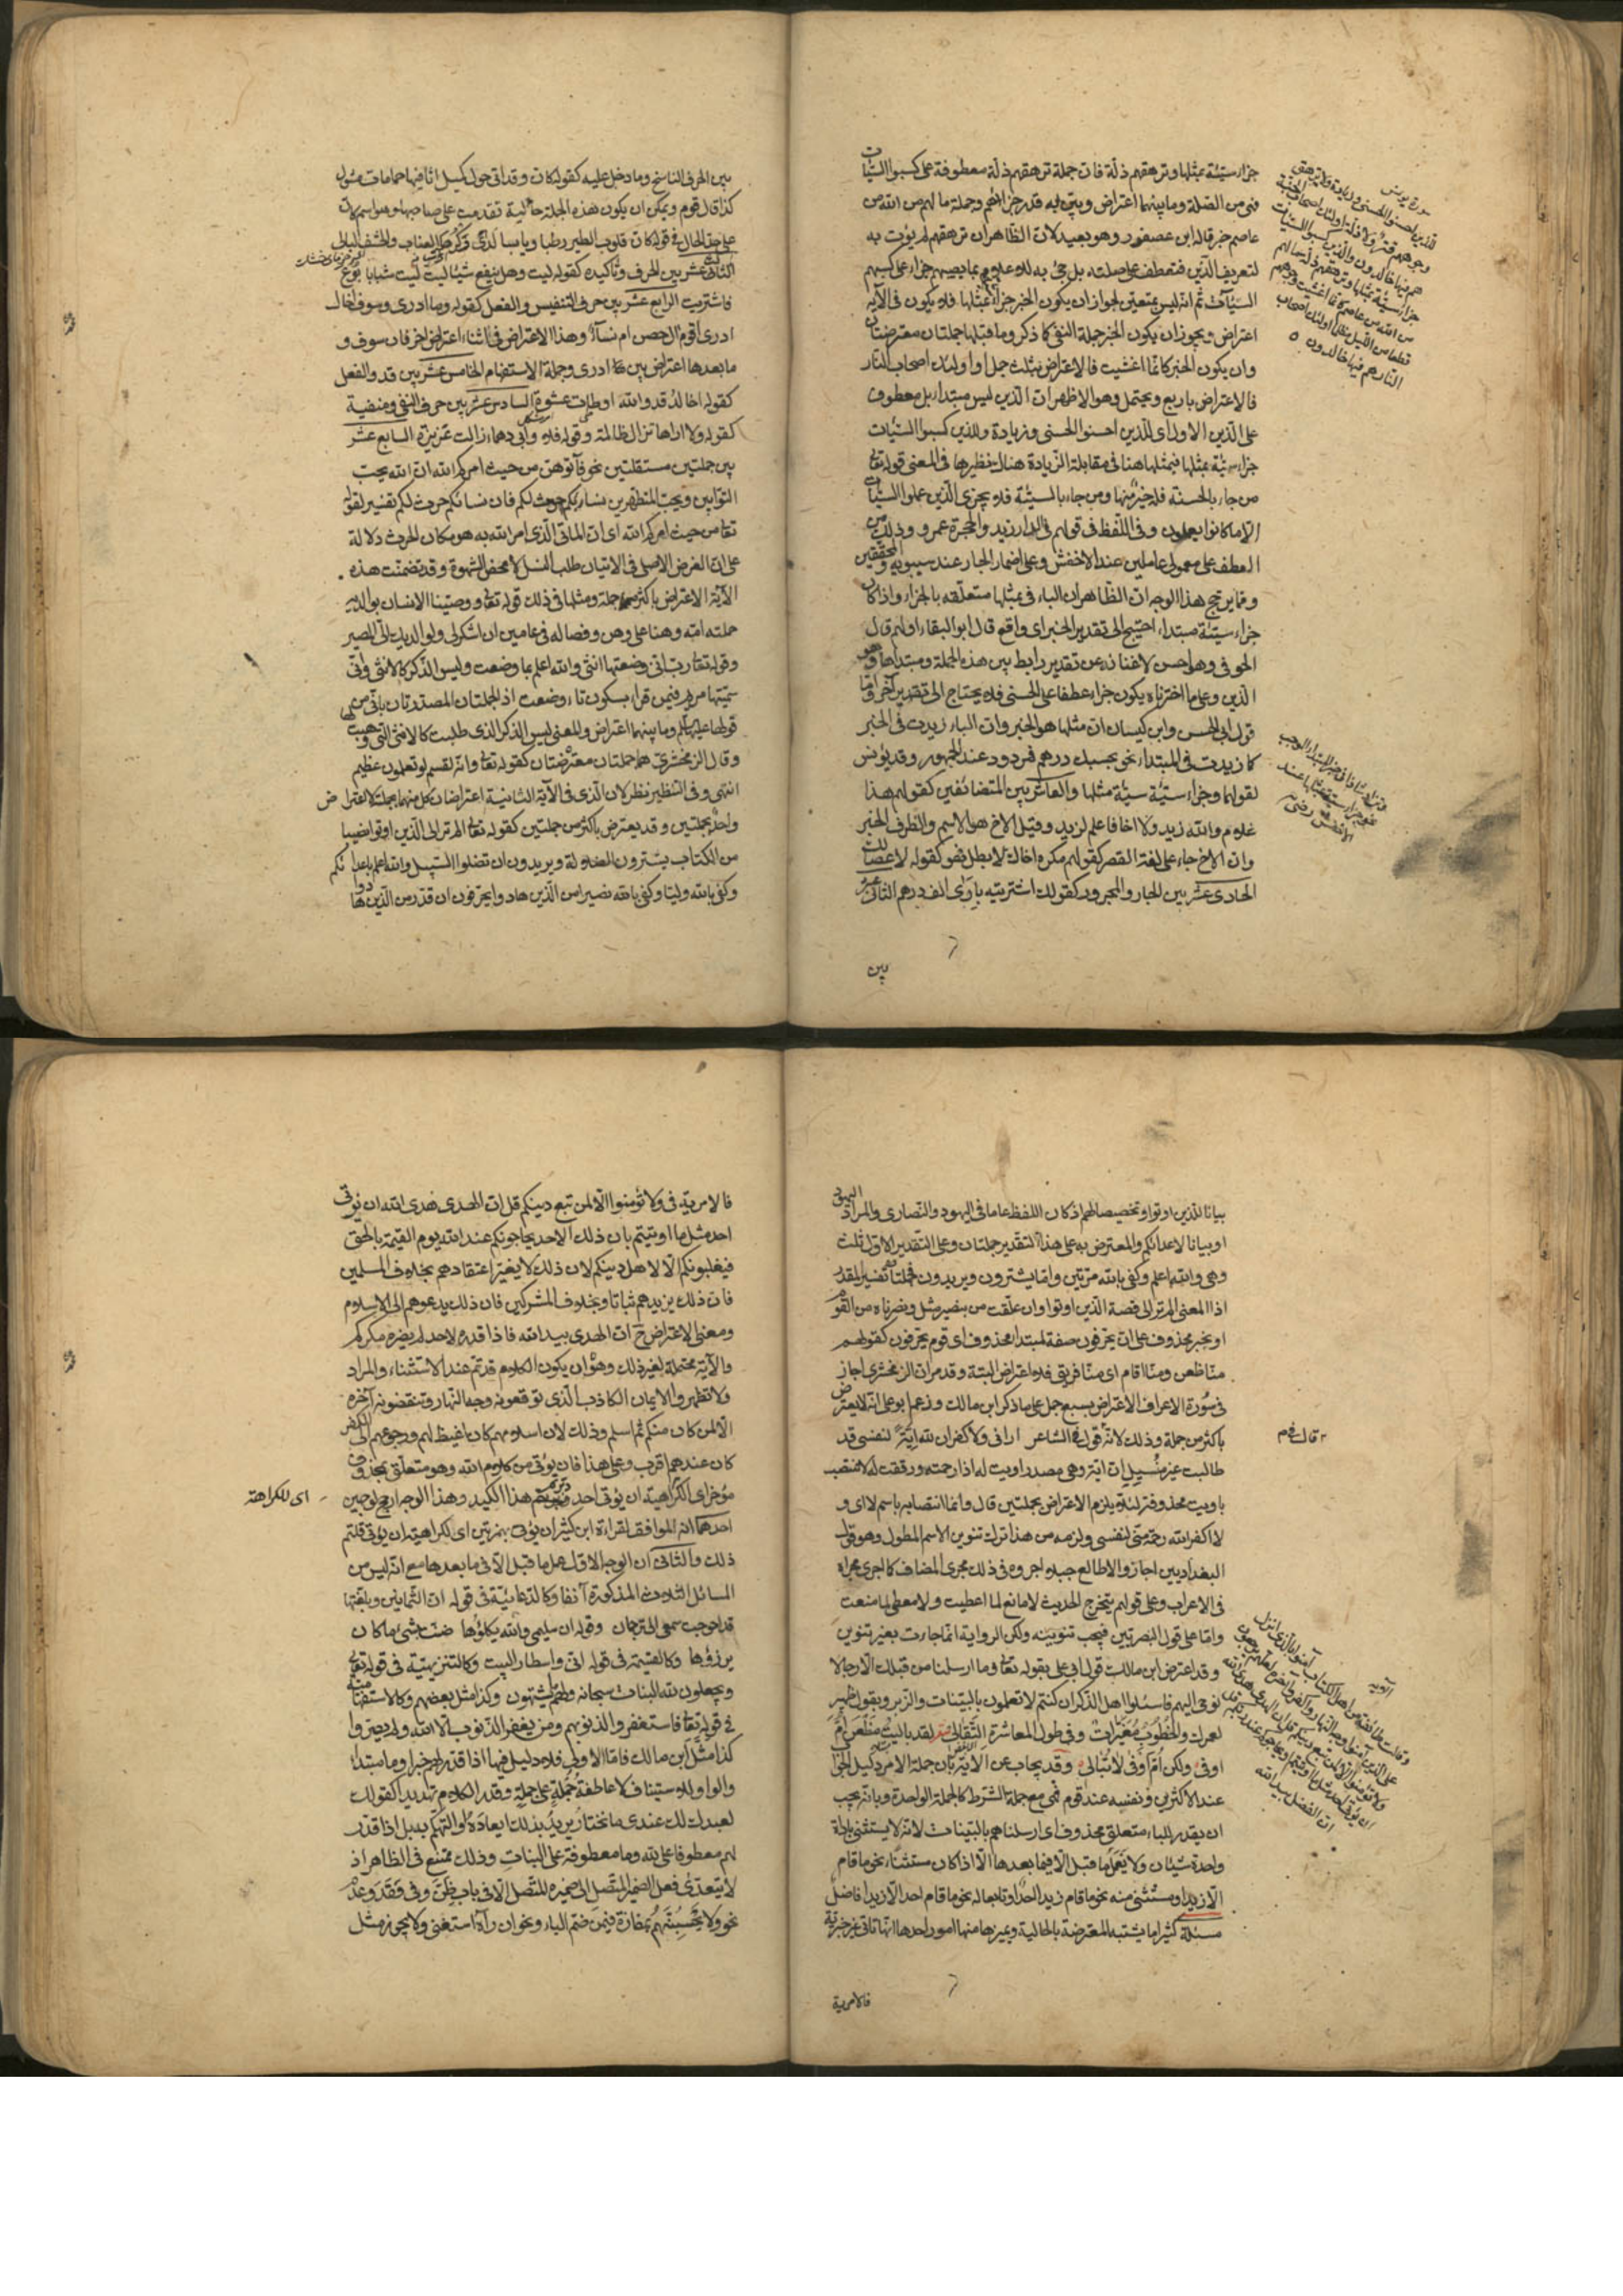 جزاء سيئة بمثلها وترهقهم ذلة فان جملة ترهقهم ذلة معطوفة على كسبوا السيئات
فهى من الصلة وما بينهما اعتراض وبين به قدر جزائهم وجملة ما لهم من الله من
عاصم خبر قاله ابن عصفور وهو بعيد لان الظاهر ان ترهقهم لم يؤت به
لتعريف الذين فتعطف على صلته بل جئ به للاعلام بما يصيبهم جزاء على كسبهم
السيآت ثم انه ليس بمتعين لجواز ان يكون الخبر جزاء بمثلها فلا يكون فى الآية
اعتراض ويجوز ان يكون الخبر جملة النفى كما ذكر وما قبلها جملتان معترضتان
وان يكون الخبر كانما اغشيت فالاعتراض بثلث جمل او اولئك اصحاب النار
فالاعتراض باربع ويحتمل وهو الاظهر ان الذين ليس مبتدا بل معطوف
على الذين الاولى اى للذين احسنوا الحسنى وزيادة وللذين كسبوا السيئات
جزاء سيئة بمثلها فبمثلها هنا فى مقابلة الزيادة هناك ونظيرها فى المعنى قوله تعالى
من جاء بالحسنة فله خير منها ومن جاء بالسيئة فلا يجزى الذين عملوا السيئات
الا ما كانوا يعملون وفى اللفظ فى قولهم فى الدار زيد والحجرة عمرو وذلك من
العطف على معمولى عاملين عند الاخفش وعلى اضمار الجار عند سيبويه والمحققين
ومما يرجح هذا الوجه ان الظاهر ان الباء فى بمثلها متعلقه بالجزاء واذا كان
جزاء سيئة مبتداء احتيج الى تقدير الخبر اى واقع قال ابو البقاء او لهم قال
الحوفى وهو احسن لاغنائه عن تقدير رابط بين هذه الجملة ومبتداها وهو
الذين وعلى ما اخترناه يكون جزاء عطفا على الحسنى فلا يحتاج الى تقدير آخر واما
قول ابى الحسن وابن كيسان ان مثلها هو الخبر وان الباء زيدت فى الخبر
كما زيدت فى المبتداء نحو بحسبك درهم فمردود عند الجمهور وقد يؤنس
لقولهما وجزاء سيئة سيئة مثلها والعاشر بين المتضائفين كقولهم هذا
غلام والله زيد ولا اخا فاعلم لزيد وقيل الاخ هو الاسم والظرف الخبر
وان الاخ جاء على لغة القصر كقولهم مكره اخاك لا بطل فهو كقولهم لا عصا لك
الحادى عشر بين الجار والمجرور كقولك اشتريته بارى الف درهم الثانى عشر
بين
سورة يونس
للذين احسنوا الحسنى وزيادة ولا يرهق
وجوههم قتر ولا ذلة اولئك اصحاب الجنة
هم فيها خالدون والذين كسبوا السيئات
جزاء سيئة بمثلها وترهقهم ذلة ما لهم
من الله من عاصم كانما اغشيت وجوههم
قطعا من الليل مظلما اولئك اصحاب
النار هم فيها خالدون
بين الحرف الناسخ وما دخل عليه كقوله كان وقد اتى حول كميل اثافيها حمامات مثول
كذا قال قوم ويمكن ان يكون هذه الجملة حالية تقدمت على صاحبها وهو اسم كان
على حد الحال فى قوله كان قلوب الطير رطبا ويابسا لدى وكرها العناب والحشف البالى
الثالث عشر بين الحرف وتأكيده كقوله ليت وهل ينفع شيئا ليت ليت شبابا بوع
فاشتريت الرابع عشر بين حرف التنفيس والفعل كقوله وما ادرى وسوف اخال
ادرى اقوم آل حصن ام نسآء وهذا الاعتراض فى اثناء اعتراض اخر فان سوف و
ما بعدها اعتراض بين ما ادرى وجملة الاستفهام الخامس عشر بين قد والفعل
كقوله اخالد قد والله اوطات عشوة السادس عشر بين حرف النفى ومنفيه
كقوله ولا اراها تزال ظالمة وقوله فلا وابى دهماء زالت عزيزة السابع عشر
بين جملتين مستقلتين نحو فآتوهن من حيث امركم الله ان الله يحب
التوابين ويحب المتطهرين نساؤكم حرث لكم فان نساؤكم حرث لكم تفسير لقوله
تعالى من حيث امركم الله اى ان المأتى الذى امر الله به هو مكان الحرث دلالة
على ان الغرض الاصلى فى الاتيان طلب النسل لا محض الشهوة وقد تضمنت هذه
الآية الاعتراض باكثر من جملة ومثلها فى ذلك قوله تعالى ووصينا الانسان بوالديه
حملته امه وهنا على وهن وفصاله فى عامين ان اشكر لى ولوالديك الى المصير
وقوله تعالى رب انى وضعتها انثى والله اعلم بما وضعت وليس الذكر كالانثى وانى
سميتها مريم فيمن قراء بسكون تاء وضعت اذ الجملتان المصدرتان بانى من
قولها عليها السلام وما بينهما اعتراض والمعنى ليس الذكر الذى طلبت كالانثى التى وهبت لها
وقال الزمخشرى هما جملتان معترضتان كقوله تعالى وانه لقسم لو تعلمون عظيم
انتهى وفى التنظير نظر لان الذى فى الآية الثانية اعتراضان كل منهما بجملة لا اعتراض
واحد بجملتين وقد يعترض باكثر من جملتين كقوله تعالى الم تر الى الذين اوتوا نصيبا
من الكتاب يشترون الضلالة ويريدون ان تضلوا السبيل والله اعلم باعدائكم
وكفى بالله وليا وكفى بالله نصيرا من الذين هادوا يحرفون ان قدر من الذين هادوا
بيانا للذين اوتوا وتخصيصا لهم اذ كان اللفظ عاما فى اليهود والنصارى والمراد اليهود
او بيانا لاعدائكم والمعترض به على هذا التقدير جملتان وعلى التقدير الاول ثلث
وهى والله اعلم وكفى بالله مرتين واما يشترون ويريدون فجملتا تفسير لمقدر
اذ المعنى الم تر الى قصة الذين اوتوا وان علقت من بنصير مثل ونصرناه من القوم
او بخبر محذوف على ان يحرفون صفة لمبتدا محذوف اى قوم يحرفون كقولهم
منا ظعن ومنا اقام اى منا فريق فلا اعتراض البتة وقد مر ان الزمخشرى اجاز
فى سورة الاعراف الاعتراض بسبع جمل على ما ذكر ابن مالك وزعم ابو على انه لا يعترض
باكثر من جملة وذلك لانه قال فى قول الشاعر ارانى ولا كفران لله اية لنفسى قد
طالبت غير منيل ان اية وهى مصدر اويت له اذا رحمته ورفقت له لا ينتصب
باويت محذوفة لئلا يلزم الاعتراض بجملتين قال وانما انتصابه باسم لا اى و
لا اكفر الله رحمة منى لنفسى ولزمه من هذا ترك تنوين الاسم المطول وهو قول
البغداديين اجازوا لا طالع جبلا اجروه فى ذلك مجرى المضاف كما اجرى مجراه
فى الاعراب وعلى قولهم يتخرج الحديث لا مانع لما اعطيت ولا معطى لما منعت
واما على قول البصريين فيجب تنوينه ولكن الرواية انما جاءت بغير تنوين
وقد اعترض ابن مالك قول ابى على بقوله تعالى وما ارسلنا من قبلك الا رجالا
نوحى اليهم فاسئلوا اهل الذكر ان كنتم لا تعلمون بالبينات والزبر وبقول زهير
لعمرك والخطوب مغيرات وفى طول المعاشرة التقالى لقد باليت مظعن ام
اوفى ولكن ام اوفى لا تبالى وقد يجاب عن الآية بان جملة الامر دليل الجواب
عند الاكثرين ونفسه عند قوم فهى مع جملة الشرط كالجملة الواحدة وبانه يجب
ان يقدر للباء متعلق محذوف اى ارسلناهم بالبينات لانه لا يستثنى باداة
واحدة شيئان ولا يعمل ما قبل الا فيما بعدها الا اذا كان مستثنى نحو ما قام
الا زيد او مستثنى منه نحو ما قام زيدا احد او تابعا له نحو ما قام احد الا زيدا فاضل
مسئلة كثيرا ما يشتبه المعترضة بالحالية ويميزها منها امور احدها انها تاتى غير خبرية
فالامرية
الآية
وقالت طائفة من اهل الكتاب آمنوا بالذى انزل
على الذين آمنوا وجه النهار واكفروا آخره لعلهم يرجعون
ولا تؤمنوا الا لمن تبع دينكم قل ان الهدى هدى الله
ان يؤتى احد مثل ما اوتيتم او يحاجوكم عند ربكم قل
ان الفضل بيد الله
فالامرية فى ولا تؤمنوا الا لمن تبع دينكم قل ان الهدى هدى الله ان يؤتى
احد مثل ما اوتيتم بان ذلك الاحد يحاجونكم عند الله يوم القيمة بالحق
فيغلبونكم الا لاهل دينكم لان ذلك لا يغير اعتقادهم بخلاف المسلمين
فان ذلك يزيدهم ثباتا وبخلاف المشركين فان ذلك يدعوهم الى الاسلام
ومعنى الاعتراض ح ان الهدى بيد الله فاذا قدره لاحد لم يضره مكركم
والآية محتملة لغير ذلك وهو ان يكون الكلام قد تم عند الاستثناء والمراد
ولا تظهروا الايمان الكاذب الذى توقعونه وجه النهار وتنقضونه آخره
الا لمن كان منكم ثم اسلم وذلك لان اسلامهم كان اغيظ لهم ورجوعهم الى الكفر
كان عندهم اقرب وعلى هذا فان يؤتى من كلام الله وهو متعلق بمحذوف
مؤخر اى الكراهية ان يؤتى احد دبرتم هذا الكيد وهذا الوجه ارجح لوجهين
احدهما انه الموافق لقراءة ابن كثير ان يؤتى بهمزتين اى لكراهية ان يؤتى قلتم
ذلك والثانى ان الوجه الاول عمل ما قبل الا فى ما بعدها مع انه ليس من
المسائل الثلاث المذكورة آنفا وكالدعائية فى قوله ان الثمانين وبلغتها
قد احوجت سمعى الى ترجمان وقوله ان سليمى والله يكلؤها ضنت بشئ ما كان
يرزؤها وكالقسمية فى قوله انى واسطار البيت وكالتنزيهية فى قوله تعالى
ويجعلون لله البنات سبحانه ولهم ما يشتهون وكذا مثل بعضهم وكالاستفهامية
فى قوله تعالى فاستغفروا لذنوبهم ومن يغفر الذنوب الا الله ولم يصروا
كذا مثل ابن مالك فاما الاولى فلا دليل فيها اذا قدر لهم خبرا وما مبتداء
والواو للاستيناف لا عاطفة جملة على جملة وقدر الكلام تهديدا كقولك
لعبدك لك عندى ما تختار يريد بذلك ايعاده او التهكم به بل اذا قدر
لهم معطوفا على لله وما معطوفة على البنات وذلك ممتنع فى الظاهر اذ
لا يتعدى فعل الضمير المتصل الى ضميره المتصل الا فى باب ظن وفى فقد وعدم
نحو ولا يحسبنهم بمفازة فيمن ضم الباء ونحو ان رآه استغنى ولا يجوز مثل
اى للكراهته